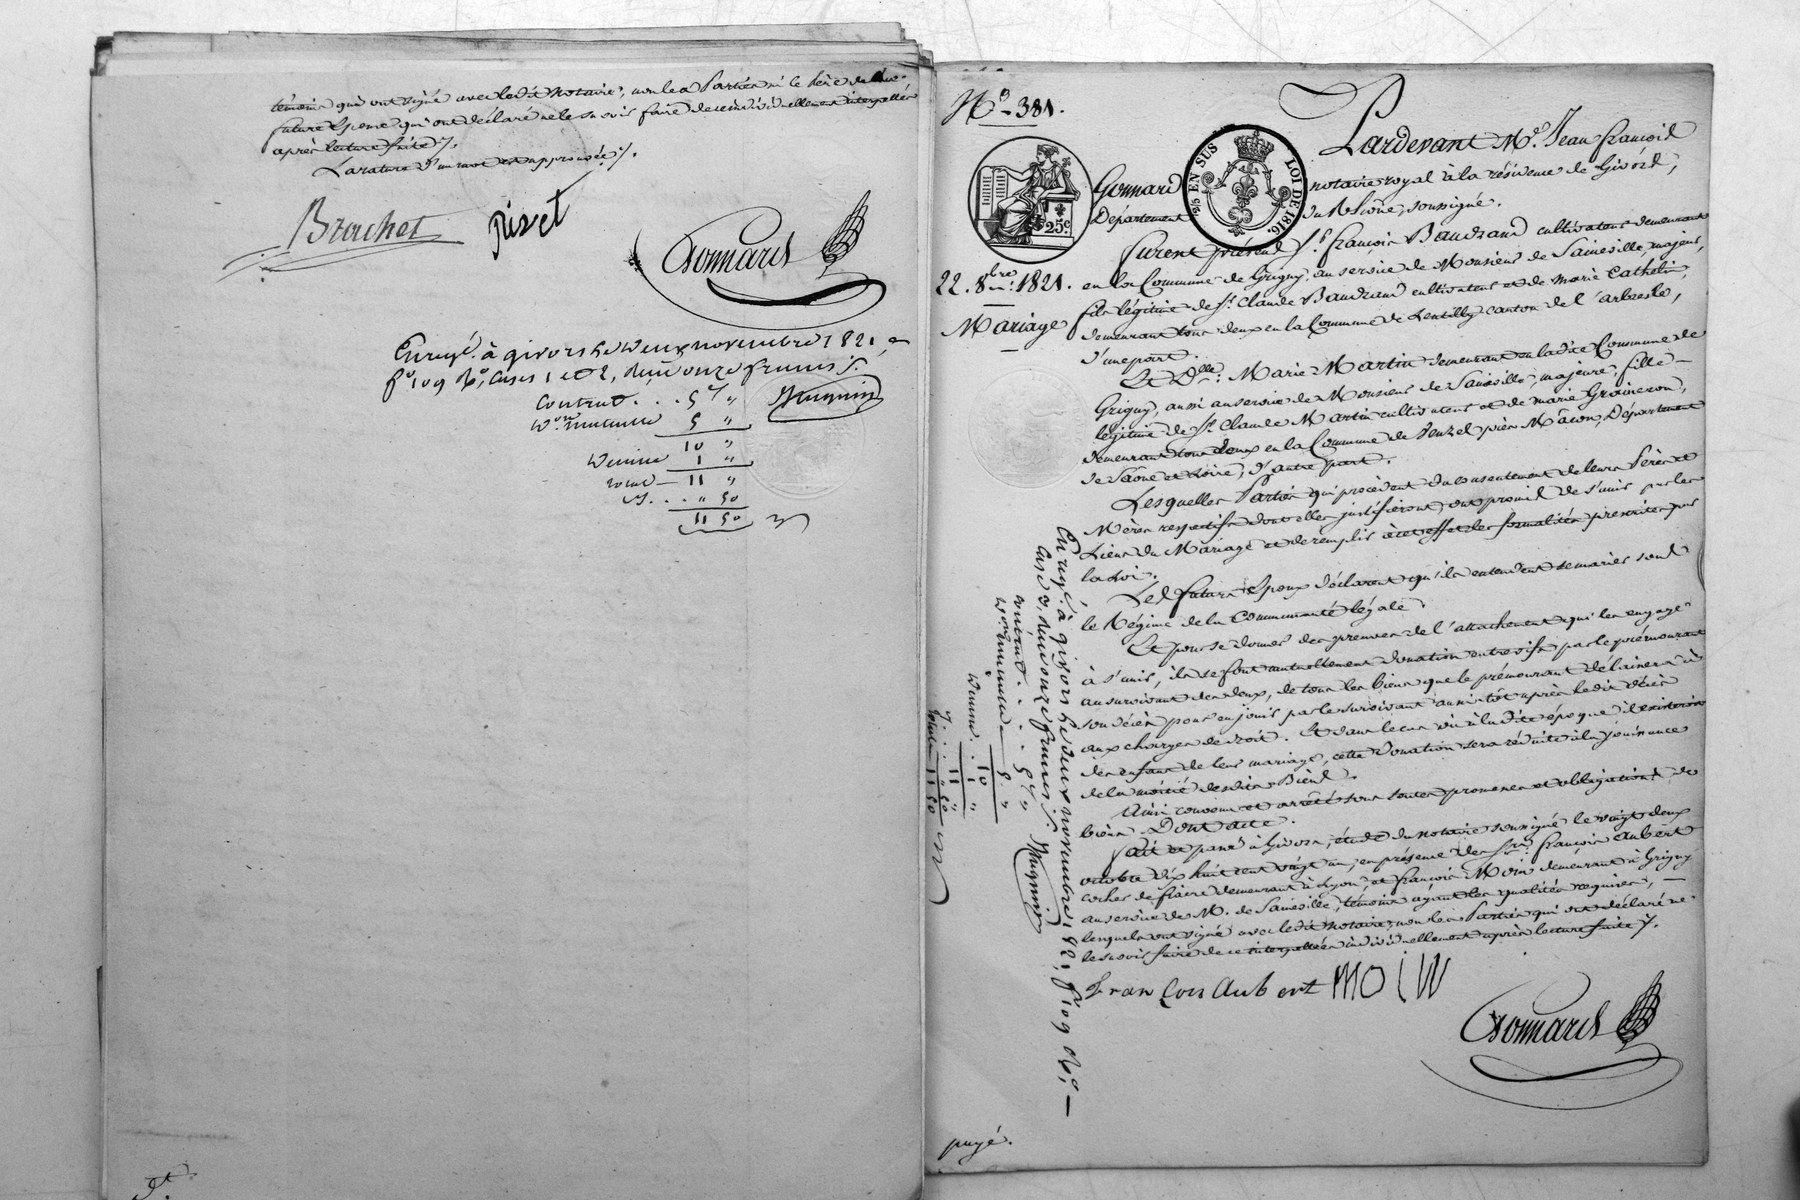 témoins qui ont signé avec ledit Notaire, non les Parties ni le Père de la
future Epouse qui ont déclaré ne le savoir faire de ce individuellement interpellés
après lecture faite /.
La rature d'un mot est approuvée /.
Brachet Rivet
Gonnard
Enreg.é à givors le deux novembre 1821,
f.o 109 v.o, cases 1 et 2, reçu onze francs 5.
Contrat . . . 5 f "
D.on mutuelle 5 "
10 "
Décime 1 "
total 11 "
" 50
11 50
N.o 381.
25.c
2/5 EN SUS LOI DE 1816.
Pardevant M.e Jean François
Gonnard notaire royal à la résidence de Givors,
Département du Rhône, soussigné.
22. 8bre 1821.
Mariage
Furent présens S.r François Baudrand cultivateur demeurant
en la Commune de Grigny au service de Monsieur de Saineville, majeur,
fils légitime de S.r Claude Baudrand cultivateur et de Marie Cathelin,
demeurant tous deux en la Commune de Lentilly canton de l'arbresle,
d'une part.
Et D.lle Marie Martin demeurant en ladite Commune de
Grigny, aussi au service de Monsieur de Saineville, majeure, fille
légitime de S.r Claude Martin cultivateur et de Marie
demeurant tous deux en la Commune de près Mâcon, Département
de Saône et Loire, d'autre part.
Lesquelles Parties qui procèdent du consentement de leurs Pères et
Mères respectifs dont elles justifieront, ont promis de s'unir par les
Liens du Mariage et de remplir à cet effet les formalités prescrites par
la Loi.
Les futurs Epoux déclarent qu'ils entendent se marier sous
le Régime de la Communauté légale.
Et pour se donner des preuves de l'attachement qui les engage
à s'unir, ils se font mutuellement donation entrevifs par le prémourant
au survivant des deux, de tous les biens que le prémourant délaissera à
son décès pour en jouir par le survivant aussitôt après ledit décès
aux charges de droit. Et dans le cas où à ladite époque il existeroit
des enfans de leur mariage, cette Donation sera réduite à la jouissance
de la moitié desdits Biens.
Ainsi convenu et arrêté sous toutes promesses et obligations de
biens Dont acte.
fait et passé à Givors, étude du notaire soussigné le vingt deux
octobre dix huit cent vingt un, en présence des Srs. François Aubert
cocher de fiacre demeurant à Lyon, et François Moin demeurant à Grigny
au service de M. de Saineville, témoins ayant les qualités requises,
lesquels ont signé avec ledit Notaire, non les Parties qui ont déclaré ne
le savoir faire de ce interpellées individuellement après lecture faite /.
Francois Aubert MOIN
Gonnard
Enreg.é à givors le deux novembre 1821 f.o 109 v.o,
case 3, reçu onze francs 5.
Contrat . . . 5 f "
D.on mutuelle 5 "
10 "
Décime . 1 "
11 "
" 50
total 11 50
payé.